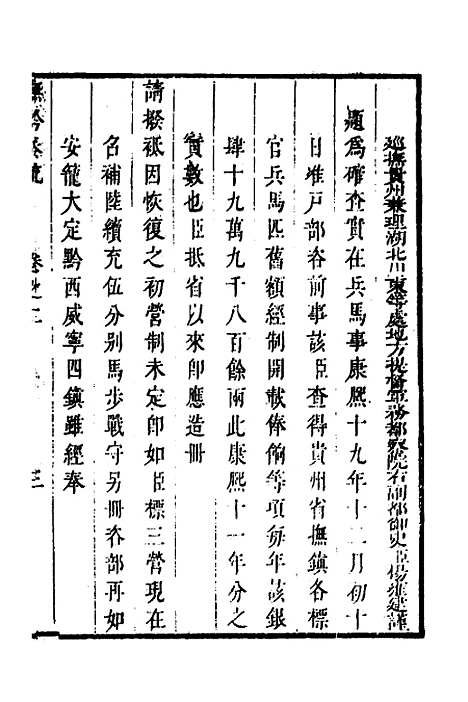 巡撫貴州兼理湖北川東等處地方提督軍務都察院右副都御史臣楊雍建謹
題爲確查實在兵馬事康熙十九年十二月初十
日准戶部咨前事該臣查得貴州省撫鎮各標
官兵馬匹舊額經制開載俸餉等項每年該銀
肆十九萬九千八百餘兩此康熙十一年分之
實數也臣抵省以來即應造冊
請撥祗因恢復之初營制未定即如臣標三營現在
名補陸續充伍分別馬步戰守另冊咨部再如
安籠大定黔西威寧四鎮雖經奉
撫黔奏疏 卷之二 三